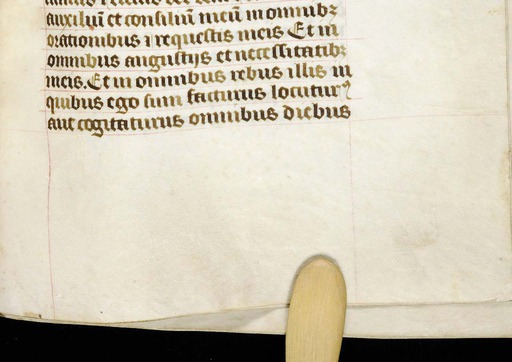 auxiliū et consiliū meū in omnibꝫ
orationibus ⁊ requestis meis Et in
omnibus angustijs et necessitatibꝫ
meis. Et in omnibus rebus illis in
quibus ego sum facturus locutur᾽
aut cogitaturus omnibus diebus